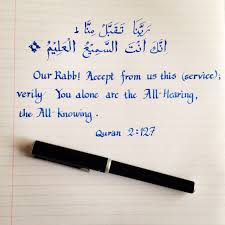 رَبَّنَا تَقَبَّلْ مِنَّا
إِنَّكَ أَنْتَ السَّمِيعُ الْعَلِيمُ
Our Rabb! Accept from us this (service);
verily You alone are the All-Hearing,
the All-Knowing.
Quran 2:127